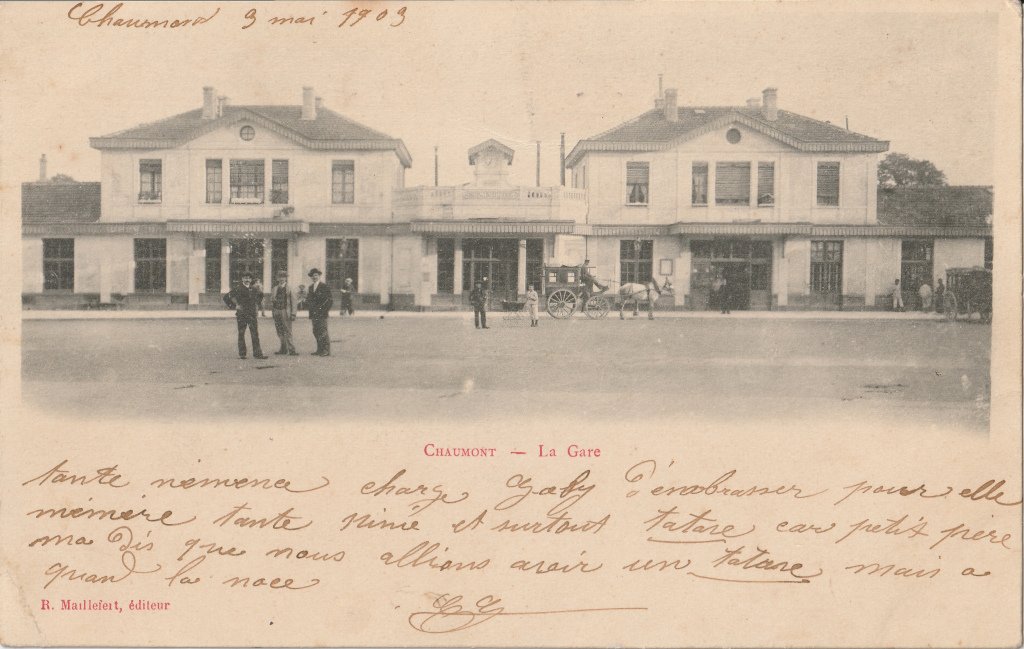 Chaumont 3 mai 1903
CHAUMONT — LA GARE
tante nemena charge Gaby d'énabrasser pour elle
mémère tante ninie et surtout tatase car petit père
ma dis que nous allions avoir un tatase mais a
quand la noce
R. Maillefert, éditeur